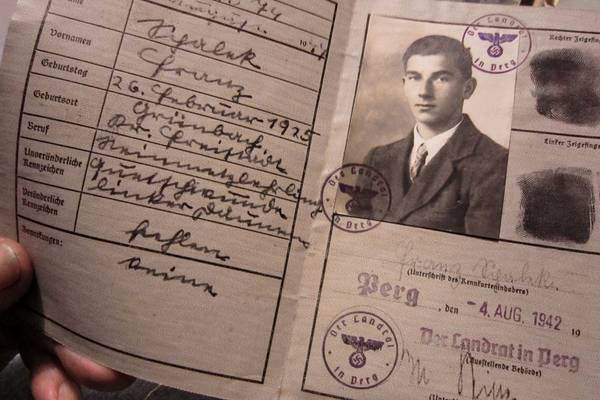 Name
Vornamen
Franz
Geburtstag
26. Februar 1925
Geburtsort
Grünbach
Beruf
Unveränderliche
Kennzeichen
Quetschwunde
linker Daumen
Veränderliche
Kennzeichen
fehlen
Bemerkungen:
keine
Der Landrat
in Perg
Rechter Zeigefing
Linker Zeigefing
Der Landrat
in Perg
Franz
(Unterschrift des Kennkarteninhabers)
Perg, den -4. AUG. 1942 19
Der Landrat in Perg
(Ausstellende Behörde)
Der Landrat
in Perg